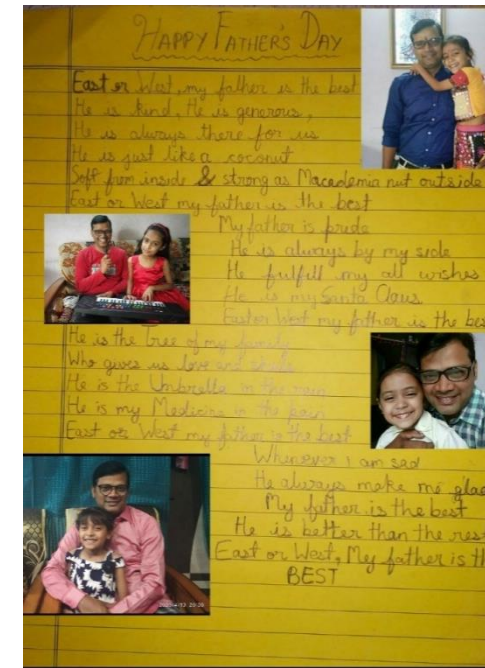 HAPPY FATHER'S DAY
East or West, my father is the best
He is kind, He is generous,
He is always there for us
He is just like a coconut
Soft from inside & strong as Macedemia nut outside
East or West my father is the best
My father is pride
He is always by my side
He fulfill my all wishes
He is my Santa Claus
East or West my father is the bes
He is the Tree of my family
Who gives us love and shade
He is the Umbrella in the rain
He is my Medicine in the pain
East or West my father is the best
Whenever I am sad
He always make me glad
My father is the best
He is better than the res
East or West, My father is th
BEST